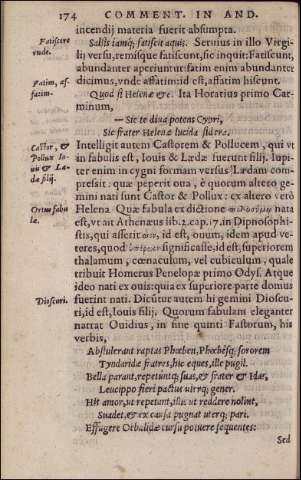 174 COMMENT. IN AND.
incendij materia fuerit absumpta.
Fatiscere
vnde.
Salsis iamq; fatiscit aquis. Seruius in illo Virgi-
lij versu, remisque fatiscunt, sic inquit: Fatiscunt,
abundanter aperiuntur: fatim enim abundanter
Fatim, af-
fatim.
dicimus, vnde affatim: id est, affatim hiscunt.
Quod si Helenæ &c. Ita Horatius primo Car-
minum,
— Sic te diua potens Cypri,
Sic frater Helenæ lucida sidera.
Castor, &
Pollux Io-
uis & Le-
dæ filij.
Intelligit autem Castorem & Pollucem, qui vt
in fabulis est, Iouis & Lædæ fuerunt filij. Iupi-
ter enim in cygni formam versus Lædam com-
pressit: quæ peperit oua, è quorum altero ge-
mini nati sunt Castor & Pollux: ex altero verò
Ortus fabu
læ.
Helena Quæ fabula ex dictione nata
est, vt ait Athenæus lib. 2. cap. 17. in Dipnosophi-
stis, qui asserit id est, ouum, idem apud ve-
teres, quod significasse, id est, superiorem
thalamum, cœnaculum, vel cubiculum, quale
tribuit Homerus Penelopæ primo Odys. Atque
ideo nati ex ouis: quia ex superiore parte domus
Dioscuri.
fuerint nati. Dicuntur autem hi gemini Dioscu-
ri, id est, Iouis filij. Quorum fabulam eleganter
narrat Ouidius, in fine quinti Fastorum, his
verbis,
Abstulerant raptas Phœben, Phœbésq; sororem
Tyndaridæ fratres, hic eques, ille pugil.
Bella parant, repetuntq; suas, & frater & Idas,
Leucippo fieri pactus uterq; gener.
His amor, ut repetant, illis ut reddere nolint,
Suadet, & ex causa pugnat uterq; pari.
Effugere Oebalidæ cursu potuere sequentes:
Sed